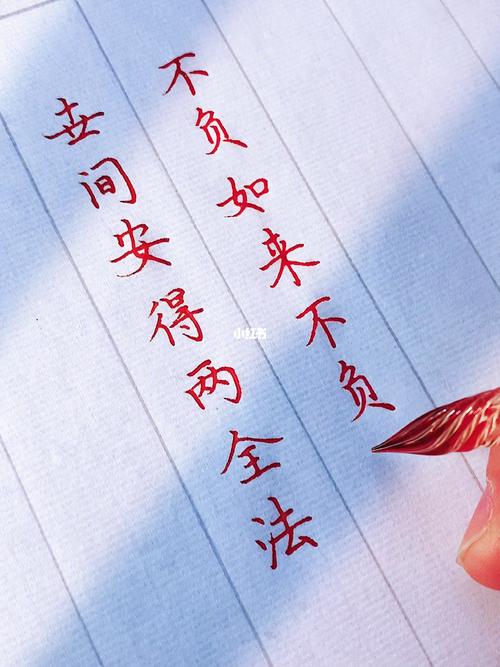 世间安得两全法
不负如来不负
小红书